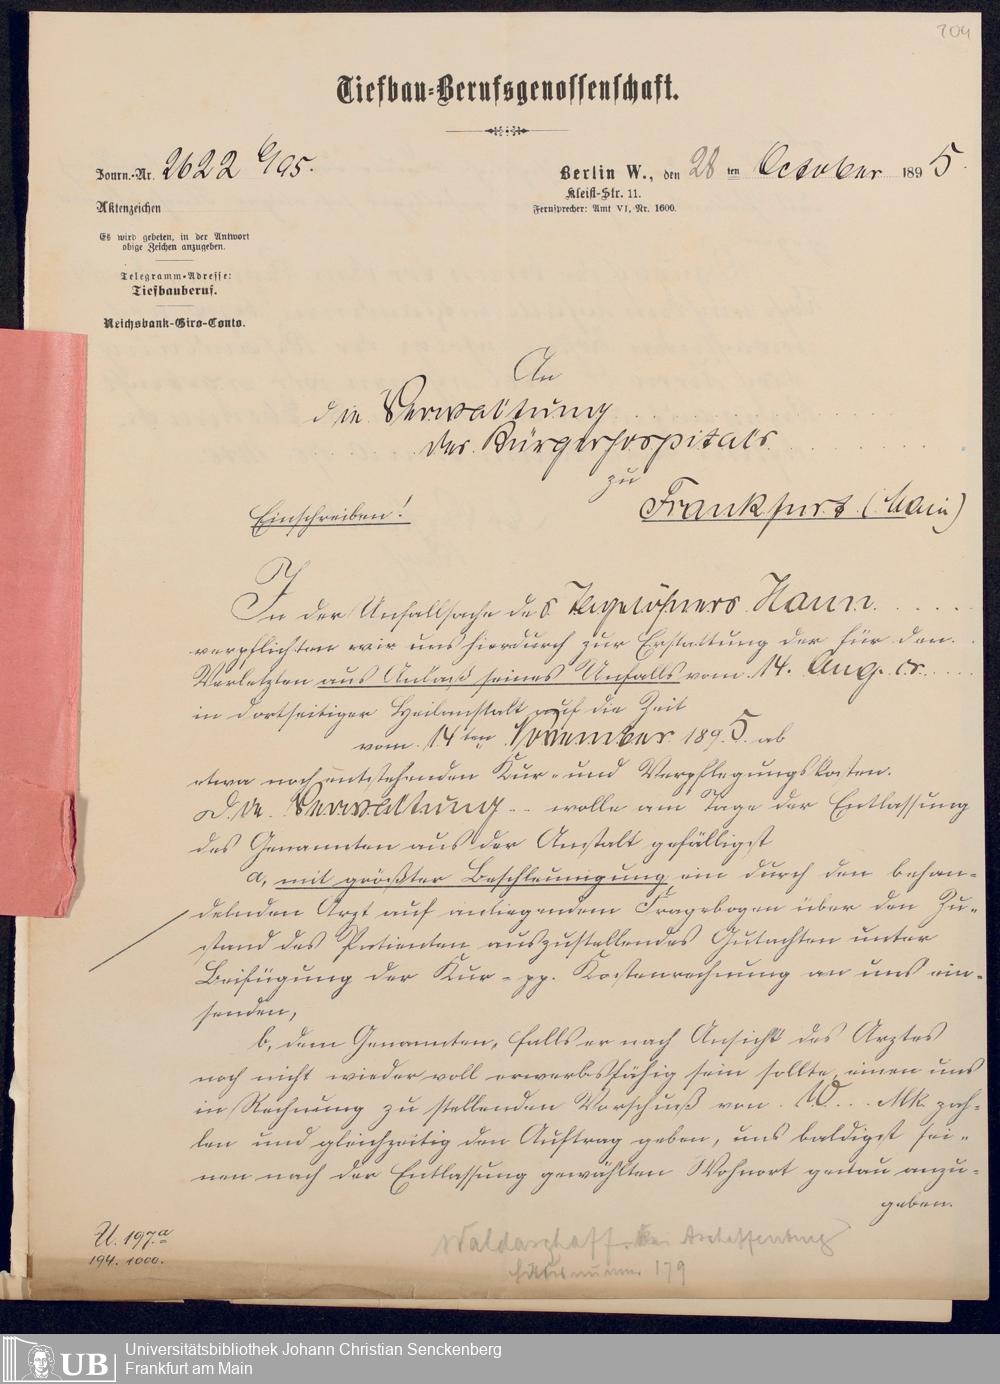 704
Tiefbau-Berufsgenossenschaft.
Journ.-Nr. 2622 C/95.
Berlin W., den 28ten October 1895.
Kleist-Str. 11.
Fernsprecher: Amt VI, Nr. 1600.
Aktenzeichen
Es wird gebeten, in der Antwort
obige Zeichen anzugeben.
Telegramm-Adresse:
Tiefbauberuf.
Reichsbank-Giro-Conto.
An
die Verwaltung
des Bürgerhospitals
zu
Frankfurt (Main)
Einschreiben!
In der Unfallsache des Tagelöhners Haun
verpflichten wir uns hierdurch zur Erstattung der für den
Verletzten aus Anlaß seines Unfalls vom 14. Aug. cr.
in dortseitiger Heilanstalt auf die Zeit
vom 14ten November 1895 ab
etwa noch entstehenden Kur- und Verpflegungskosten.
Die Verwaltung wolle am Tage der Entlassung
des Genannten aus der Anstalt gefälligst
a, mit größter Beschleunigung ein durch den behan-
delnden Arzt auf anliegendem Fragebogen über den Zu-
stand des Patienten auszustellendes Gutachten unter
Beifügung der Kur- pp. Kostenrechnung an uns ein-
senden,
b, dem Genannten, falls er nach Ansicht des Arztes
noch nicht wieder voll erwerbsfähig sein sollte, einen uns
in Rechnung zu stellenden Vorschuß von 10 Mk. zah-
len und gleichzeitig den Auftrag geben, uns baldigst sei-
nen nach der Entlassung gewählten Wohnort genau anzu-
geben.
U. 197.a
194. 1000.
Waldaschaff bei Aschaffenburg
Hausnummer 179
Universitätsbibliothek Johann Christian Senckenberg
Frankfurt am Main
UB